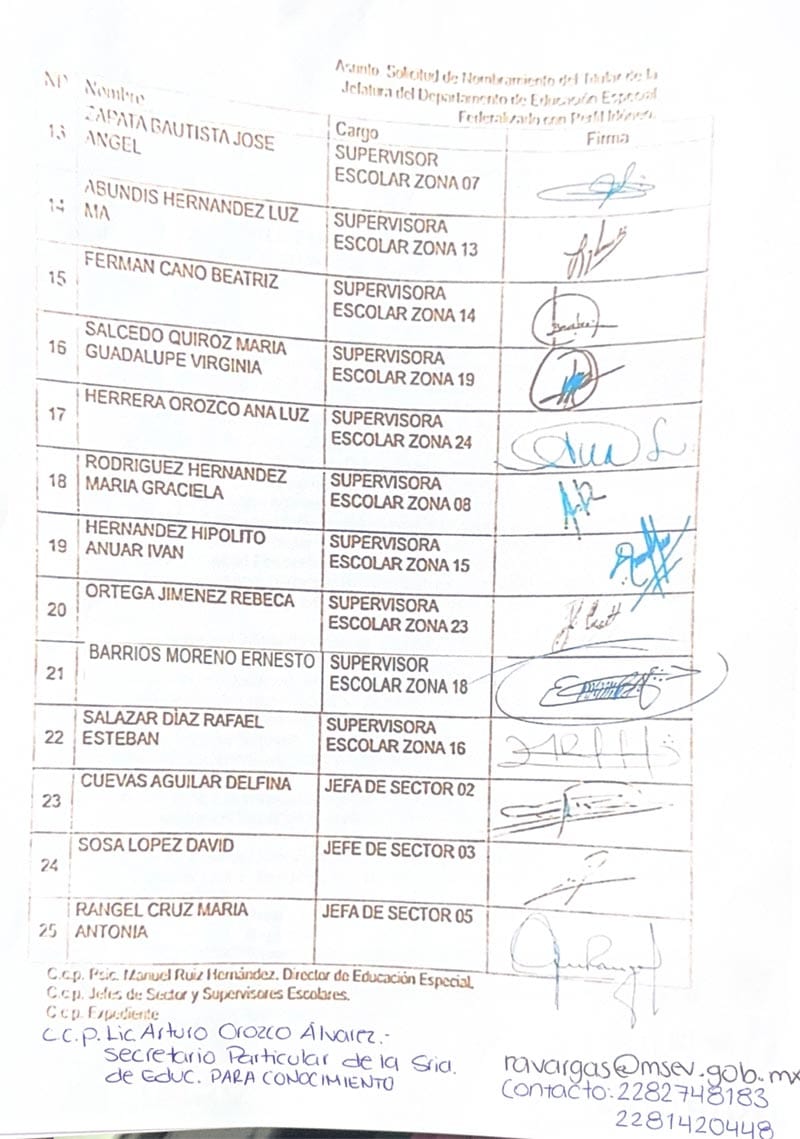 Asunto. Solicitud de Nombramiento del Titular de la
Jefatura del Departamento de Educación Especial
Federalizado con Perfil Idóneo.
Nº Nombre Cargo Firma
13 ZAPATA BAUTISTA JOSE
ANGEL
SUPERVISOR
ESCOLAR ZONA 07
14 ABUNDIS HERNANDEZ LUZ
MA
SUPERVISORA
ESCOLAR ZONA 13
15 FERMAN CANO BEATRIZ
SUPERVISORA
ESCOLAR ZONA 14
16 SALCEDO QUIROZ MARIA
GUADALUPE VIRGINIA
SUPERVISORA
ESCOLAR ZONA 19
17 HERRERA OROZCO ANA LUZ
SUPERVISORA
ESCOLAR ZONA 24
Ana L
18 RODRIGUEZ HERNANDEZ
MARIA GRACIELA
SUPERVISORA
ESCOLAR ZONA 08
19 HERNANDEZ HIPOLITO
ANUAR IVAN
SUPERVISORA
ESCOLAR ZONA 15
20 ORTEGA JIMENEZ REBECA
SUPERVISORA
ESCOLAR ZONA 23
21 BARRIOS MORENO ERNESTO
SUPERVISOR
ESCOLAR ZONA 18
22 SALAZAR DÍAZ RAFAEL
ESTEBAN
SUPERVISORA
ESCOLAR ZONA 16
23 CUEVAS AGUILAR DELFINA
JEFA DE SECTOR 02
24 SOSA LOPEZ DAVID
JEFE DE SECTOR 03
25 RANGEL CRUZ MARIA
ANTONIA
JEFA DE SECTOR 05
C.c.p. Psic. Manuel Ruiz Hernández. Director de Educación Especial.
C.c.p. Jefes de Sector y Supervisores Escolares.
C.c.p. Expediente
C.C.P. Lic. Arturo Orozco Álvarez.-
Secretario Particular de la Sria.
de Educ. PARA CONOCIMIENTO
ravargas@msev.gob.mx
Contacto: 2282748183
2281420448